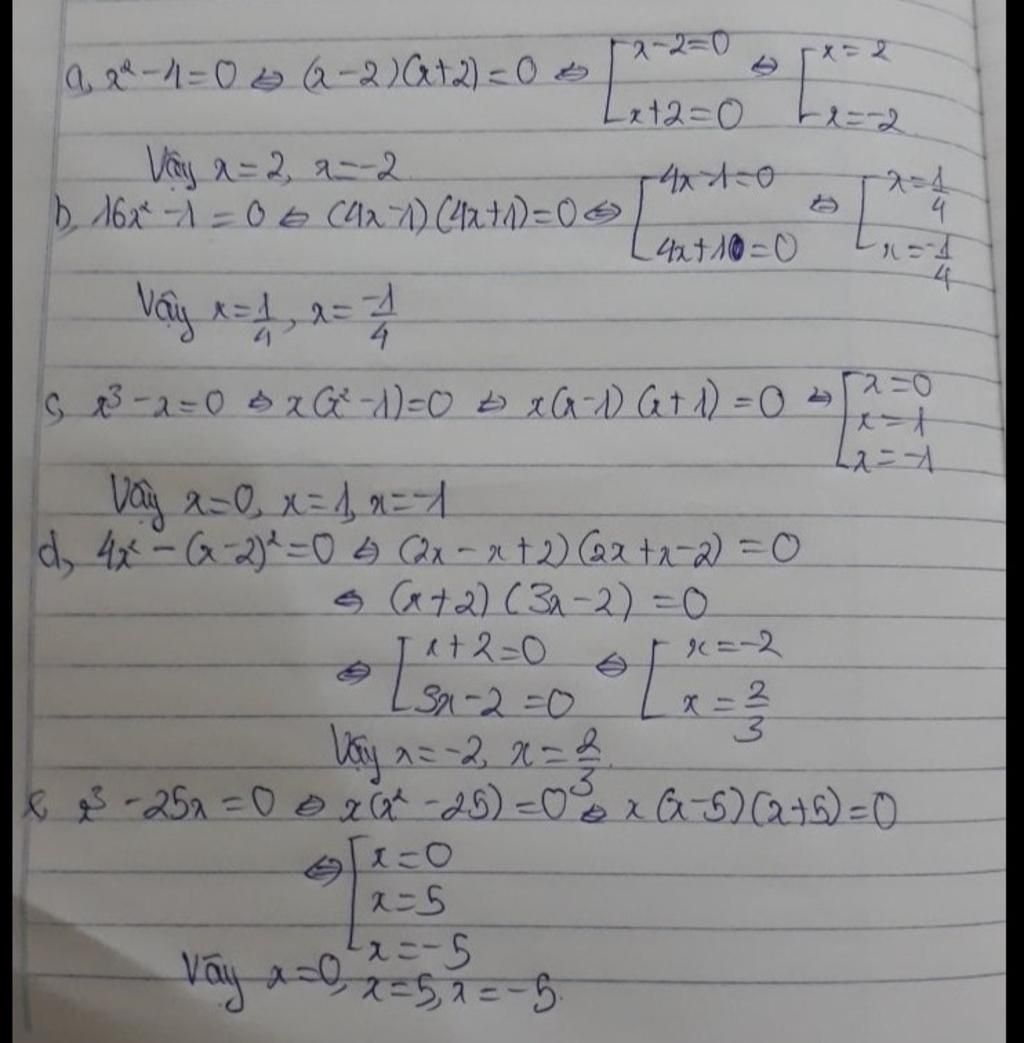 a, x² - 4 = 0 ⇔ (x-2)(x+2) = 0 ⇔ [x-2=0 ⇔ [x=2
x+2=0 x=-2
Vậy x=2, x=-2
b, 16x² - 1 = 0 ⇔ (4x-1)(4x+1)=0 ⇔ [4x-1=0 ⇔ [x=1/4
4x+1=0 x=-1/4
Vậy x=1/4, x=-1/4
c, x³ - x = 0 ⇔ x(x²-1)=0 ⇔ x(x-1)(x+1)=0 ⇔ [x=0
x=1
x=-1
Vậy x=0, x=1, x=-1
d, 4x² - (x-2)² = 0 ⇔ (2x - x+2)(2x+x-2) = 0
⇔ (x+2)(3x-2) = 0
⇔ [x+2=0 ⇔ [x=-2
3x-2=0 x=2/3
Vậy x=-2, x=2/3.
x³ - 25x = 0 ⇔ x(x² - 25) = 0 ⇔ x(x-5)(x+5)=0
⇔ [x=0
x=5
x=-5
Vậy x=0, x=5, x=-5.